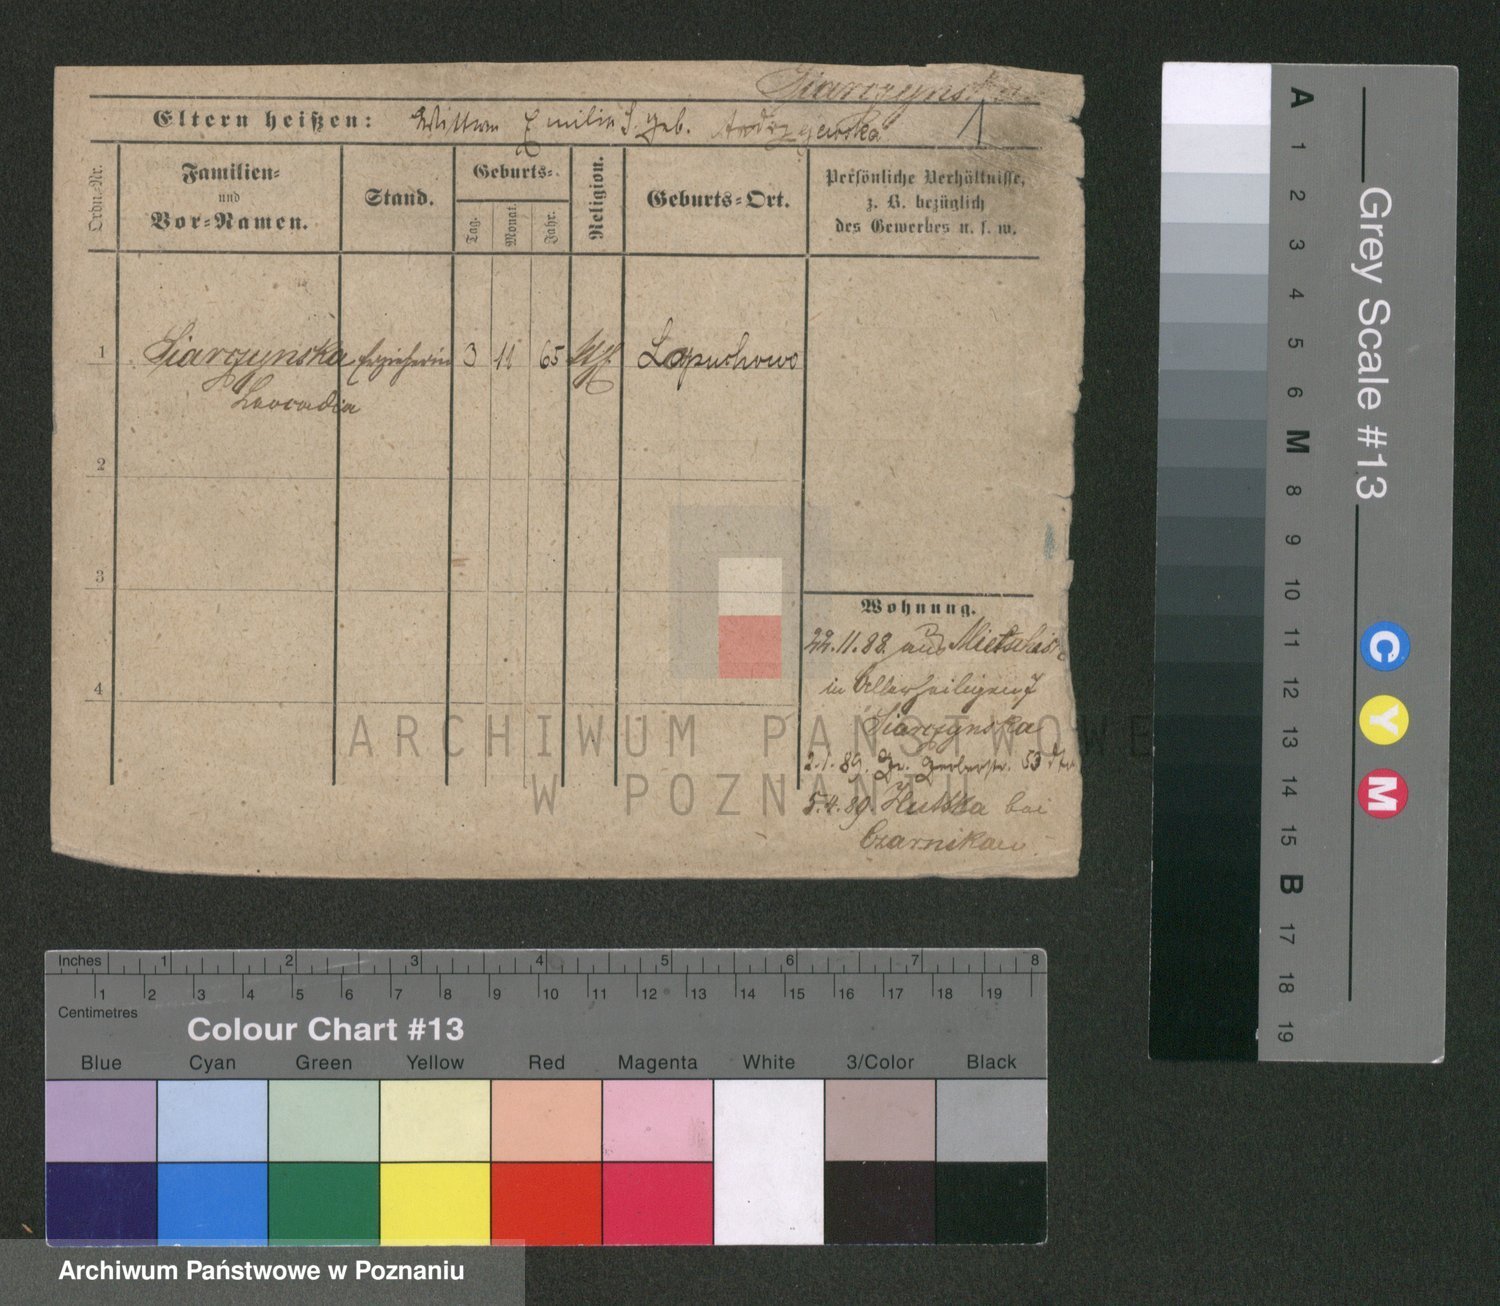 Siarczynska
Eltern heißen: Wittwe Emilie S. geb. Andrzejewska
Ordn.-Nr.
Familien-
und
Vor-Namen.
Stand.
Geburts-
Tag.
Monat.
Jahr.
Religion.
Geburts-Ort.
Persönliche Verhältnisse,
z. B. bezüglich
des Gewerbes u. s. w.
1 Siarczynska Erzieherin 3 11 65 kath Lopuchowo
Leocadia
2
3
4
Wohnung.
22.11.88. aus Mietschis
in Allerheiligen 7
Siarczynska
2.1.89. Gr. Gerberstr. 53
5.4.89. Hutta bei
Czarnikau
ARCHIWUM PAŃSTWOWE
W POZNANIU
Inches 1 2 3 4 5 6 7 8
1 2 3 4 5 6 7 8 9 10 11 12 13 14 15 16 17 18 19
Centimetres
Colour Chart #13
Blue Cyan Green Yellow Red Magenta White 3/Color Black
Grey Scale #13
A 1 2 3 4 5 6 M 8 9 10 11 12 13 14 15 B 17 18 19
C Y M
Archiwum Państwowe w Poznaniu